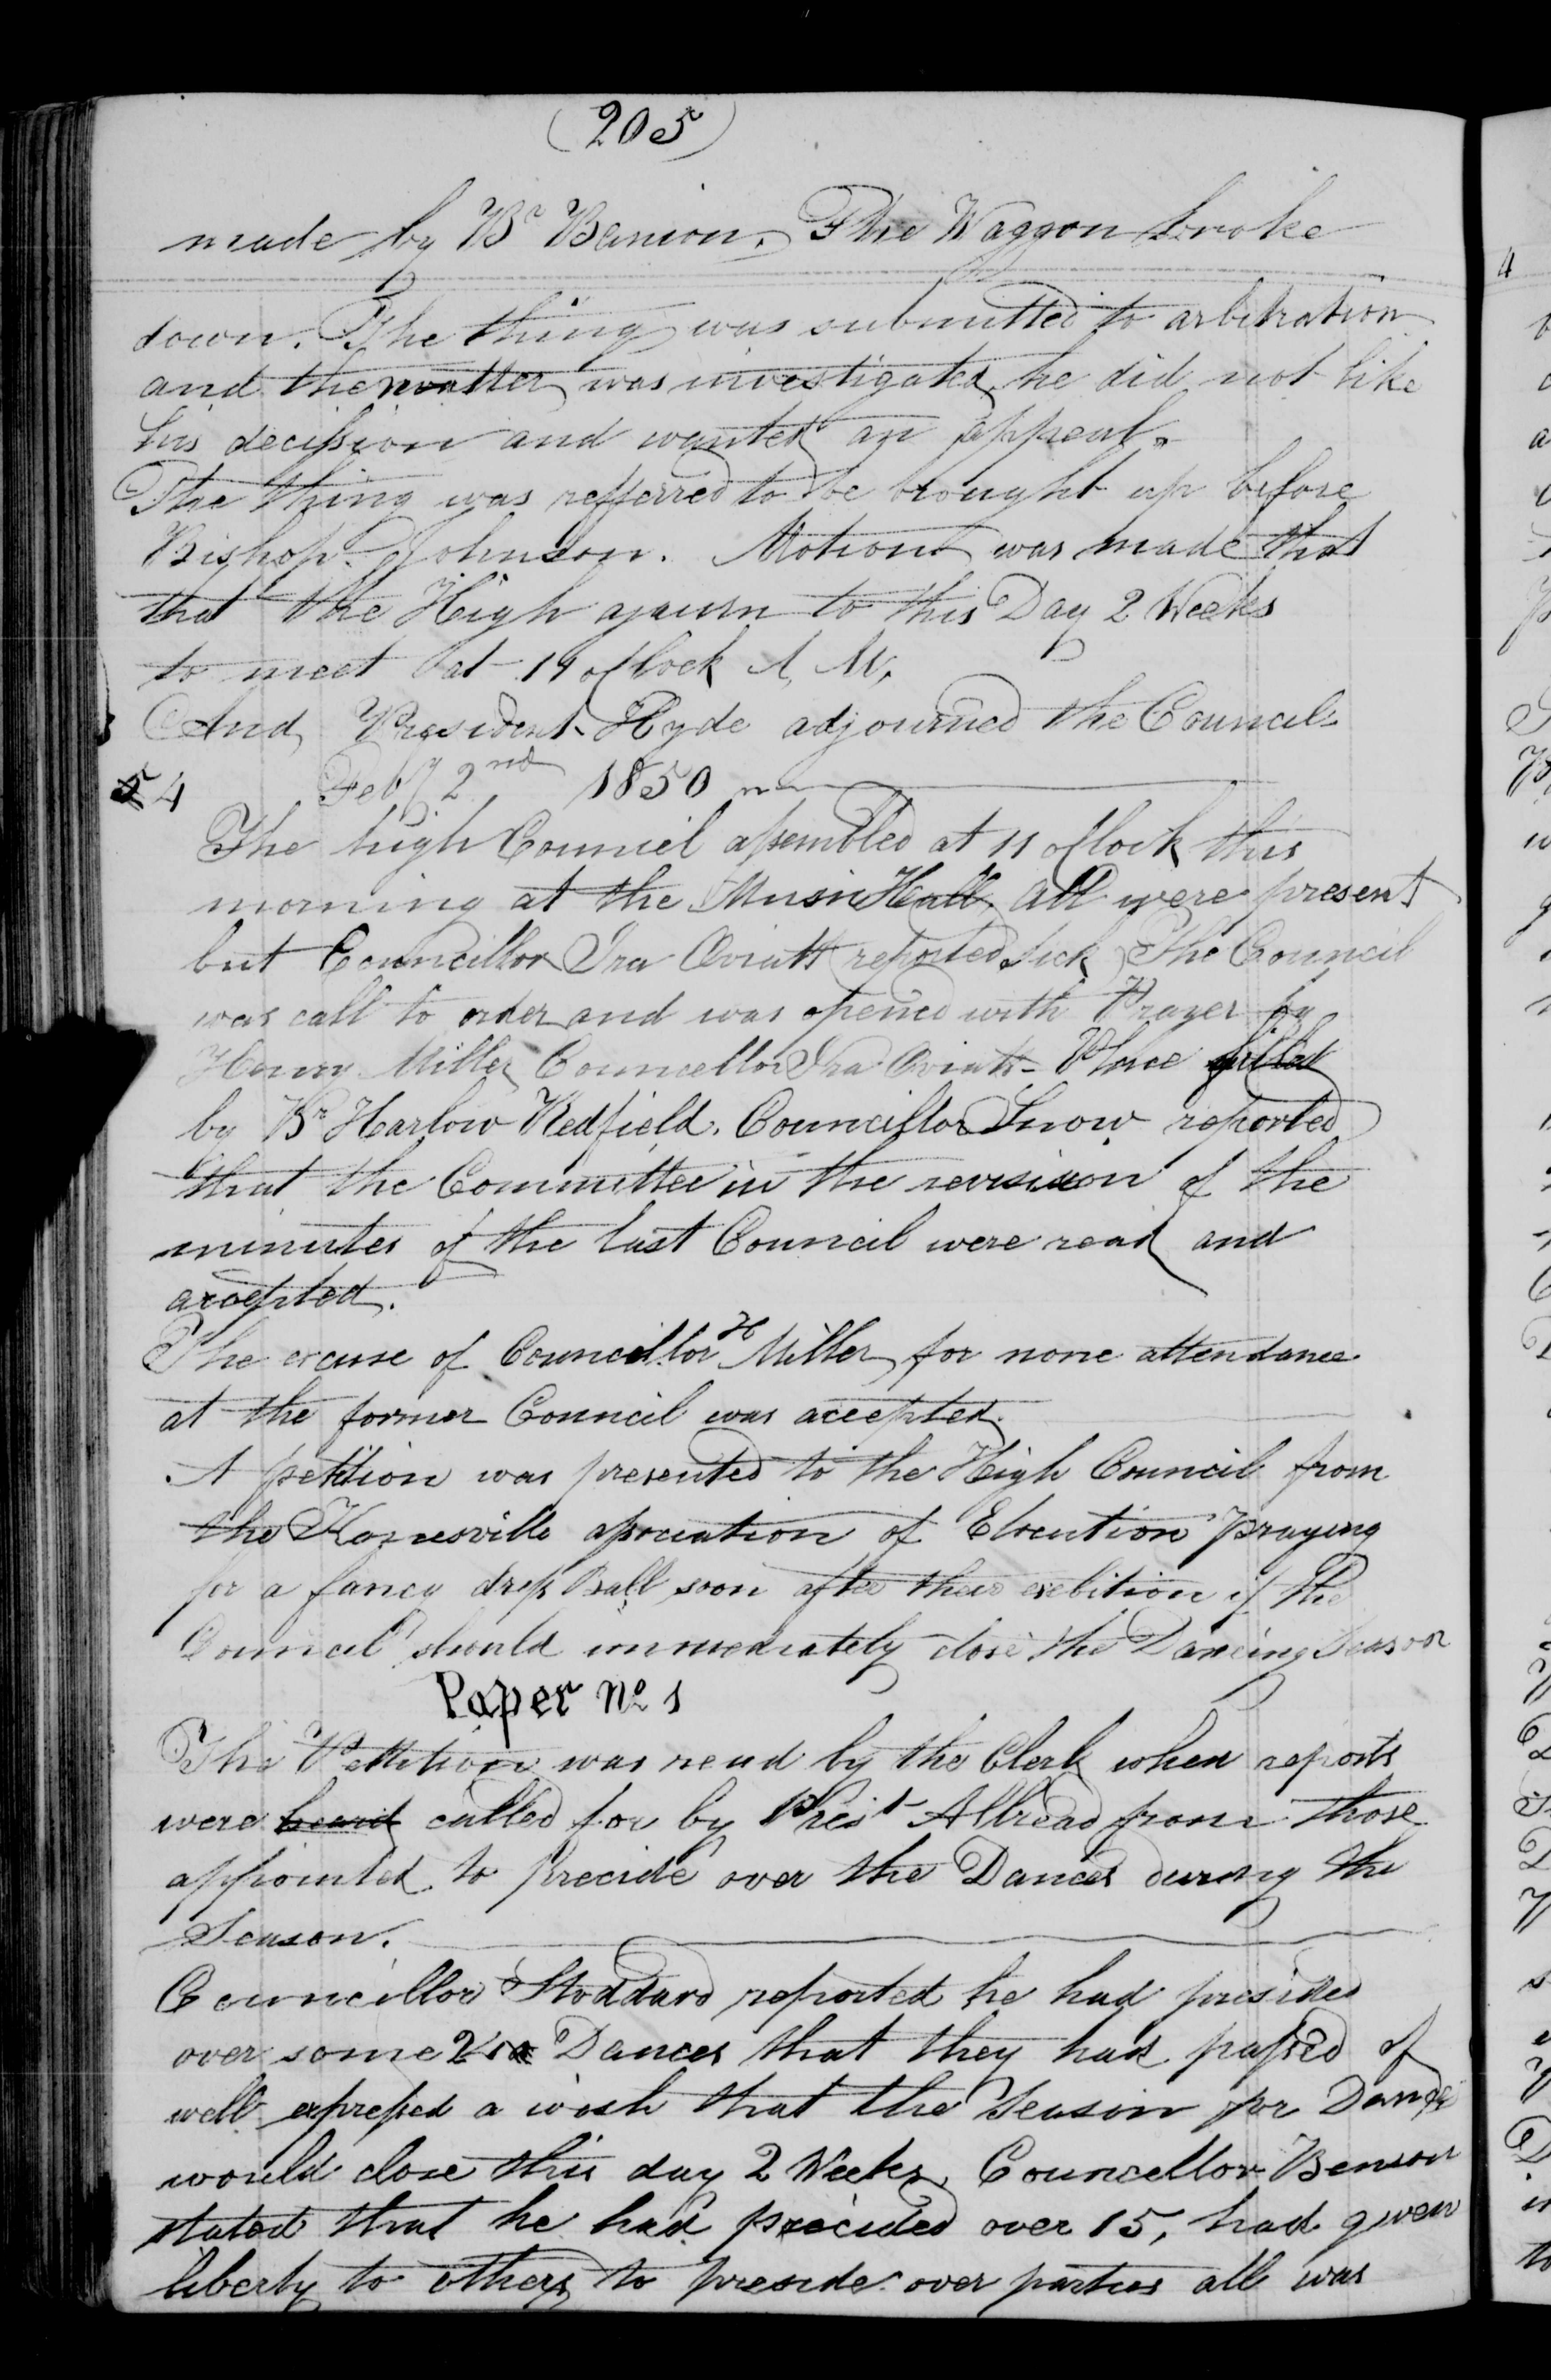 (205)
made by Br Banion. The Waggon broke
down. The thing was submitted to arbitration
and the matter was investigated he did not like
his decission and wanted an appeal.
The thing was refferred to be brought up before
Bishop Johnson. Motion was made that
that the High ajourn to this Day 2 Weeks
to meet at o Clock A, M,
And President Hyde adjourned the Council
4 Feby 2nd 1850
The high Council assembled at 11 oClock this
morning at the Music Hall, All were present
but Councillor Ira Oviatt reported sick The Council
was call to order and was opened with Prayer by
Henry Miller Councellor Ira Oviatts Place filled
by Br Harlow Redfield. Councillor Snow reported
that the Committee in the revision of the
minutes of the last Council were read and
accepted.
The excuse of Councillor H Miller for none attendance
at the former Council was accepted.
A petition was presented to the High Council from
the Kanesville association of Elocution praying
for a fancy dress Ball soon after their exebition if the
Council should immediately close the Dancing Season
Paper No 1
The Petition was read by the Clerk when reports
were heard called for by Prest Allread from those
appointed to precide over the Dances during the
Season.
Councillor Stoddard reported he had presided
over some Dances that they had passed of
well expressed a wish that the Season for Dance
would close this day 2 Weeks. Councellor Benson
stated that he had precided over 15, had given
liberty to others to preside over parties all was